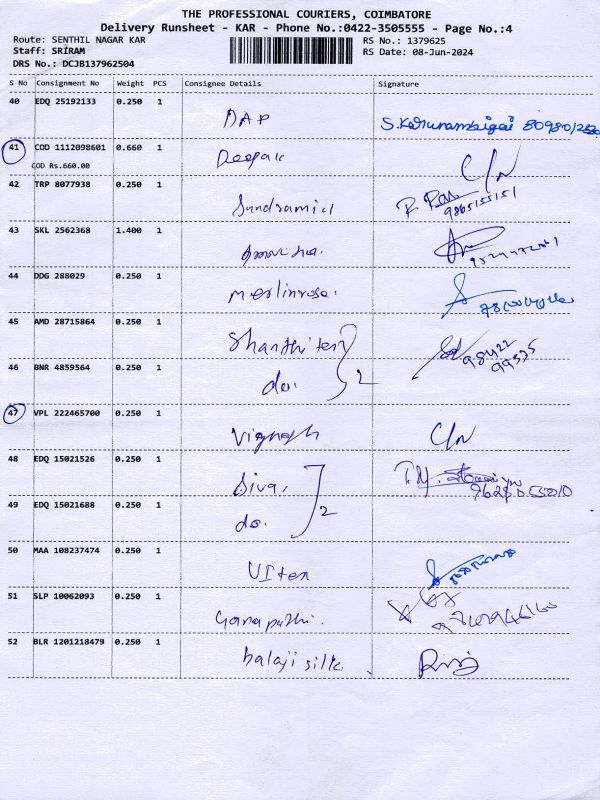 THE PROFESSIONAL COURIERS, COIMBATORE
Delivery Runsheet - KAR - Phone No.:0422-3505555 - Page No.:4
Route: SENTHIL NAGAR KAR RS No.: 1379625
Staff: SRIRAM RS Date: 08-Jun-2024
DRS No.: DCJB137962504
S No Consignment No Weight PCS Consignee Details Signature
40 EDQ 25192133 0.250 1 DAP S.Karunambigai
41 COD 1112098601 0.660 1 Deepak C/N
COD Rs.660.00
42 TRP 8077938 0.250 1 9865155151
43 SKL 2562368 1.400 1
44 DDG 288029 0.250 1 Merlinrose.
45 AMD 28715864 0.250 1 98422
99575
46 BNR 4859564 0.250 1 do. 2
47 VPL 222465700 0.250 1 Vignesh C/N
48 EDQ 15021526 0.250 1 Siva.
49 EDQ 15021688 0.250 1 do. 2
50 MAA 108237474 0.250 1 UTtex
51 SLP 10062093 0.250 1 Ganapathi.
52 BLR 1201218479 0.250 1 balaji silk